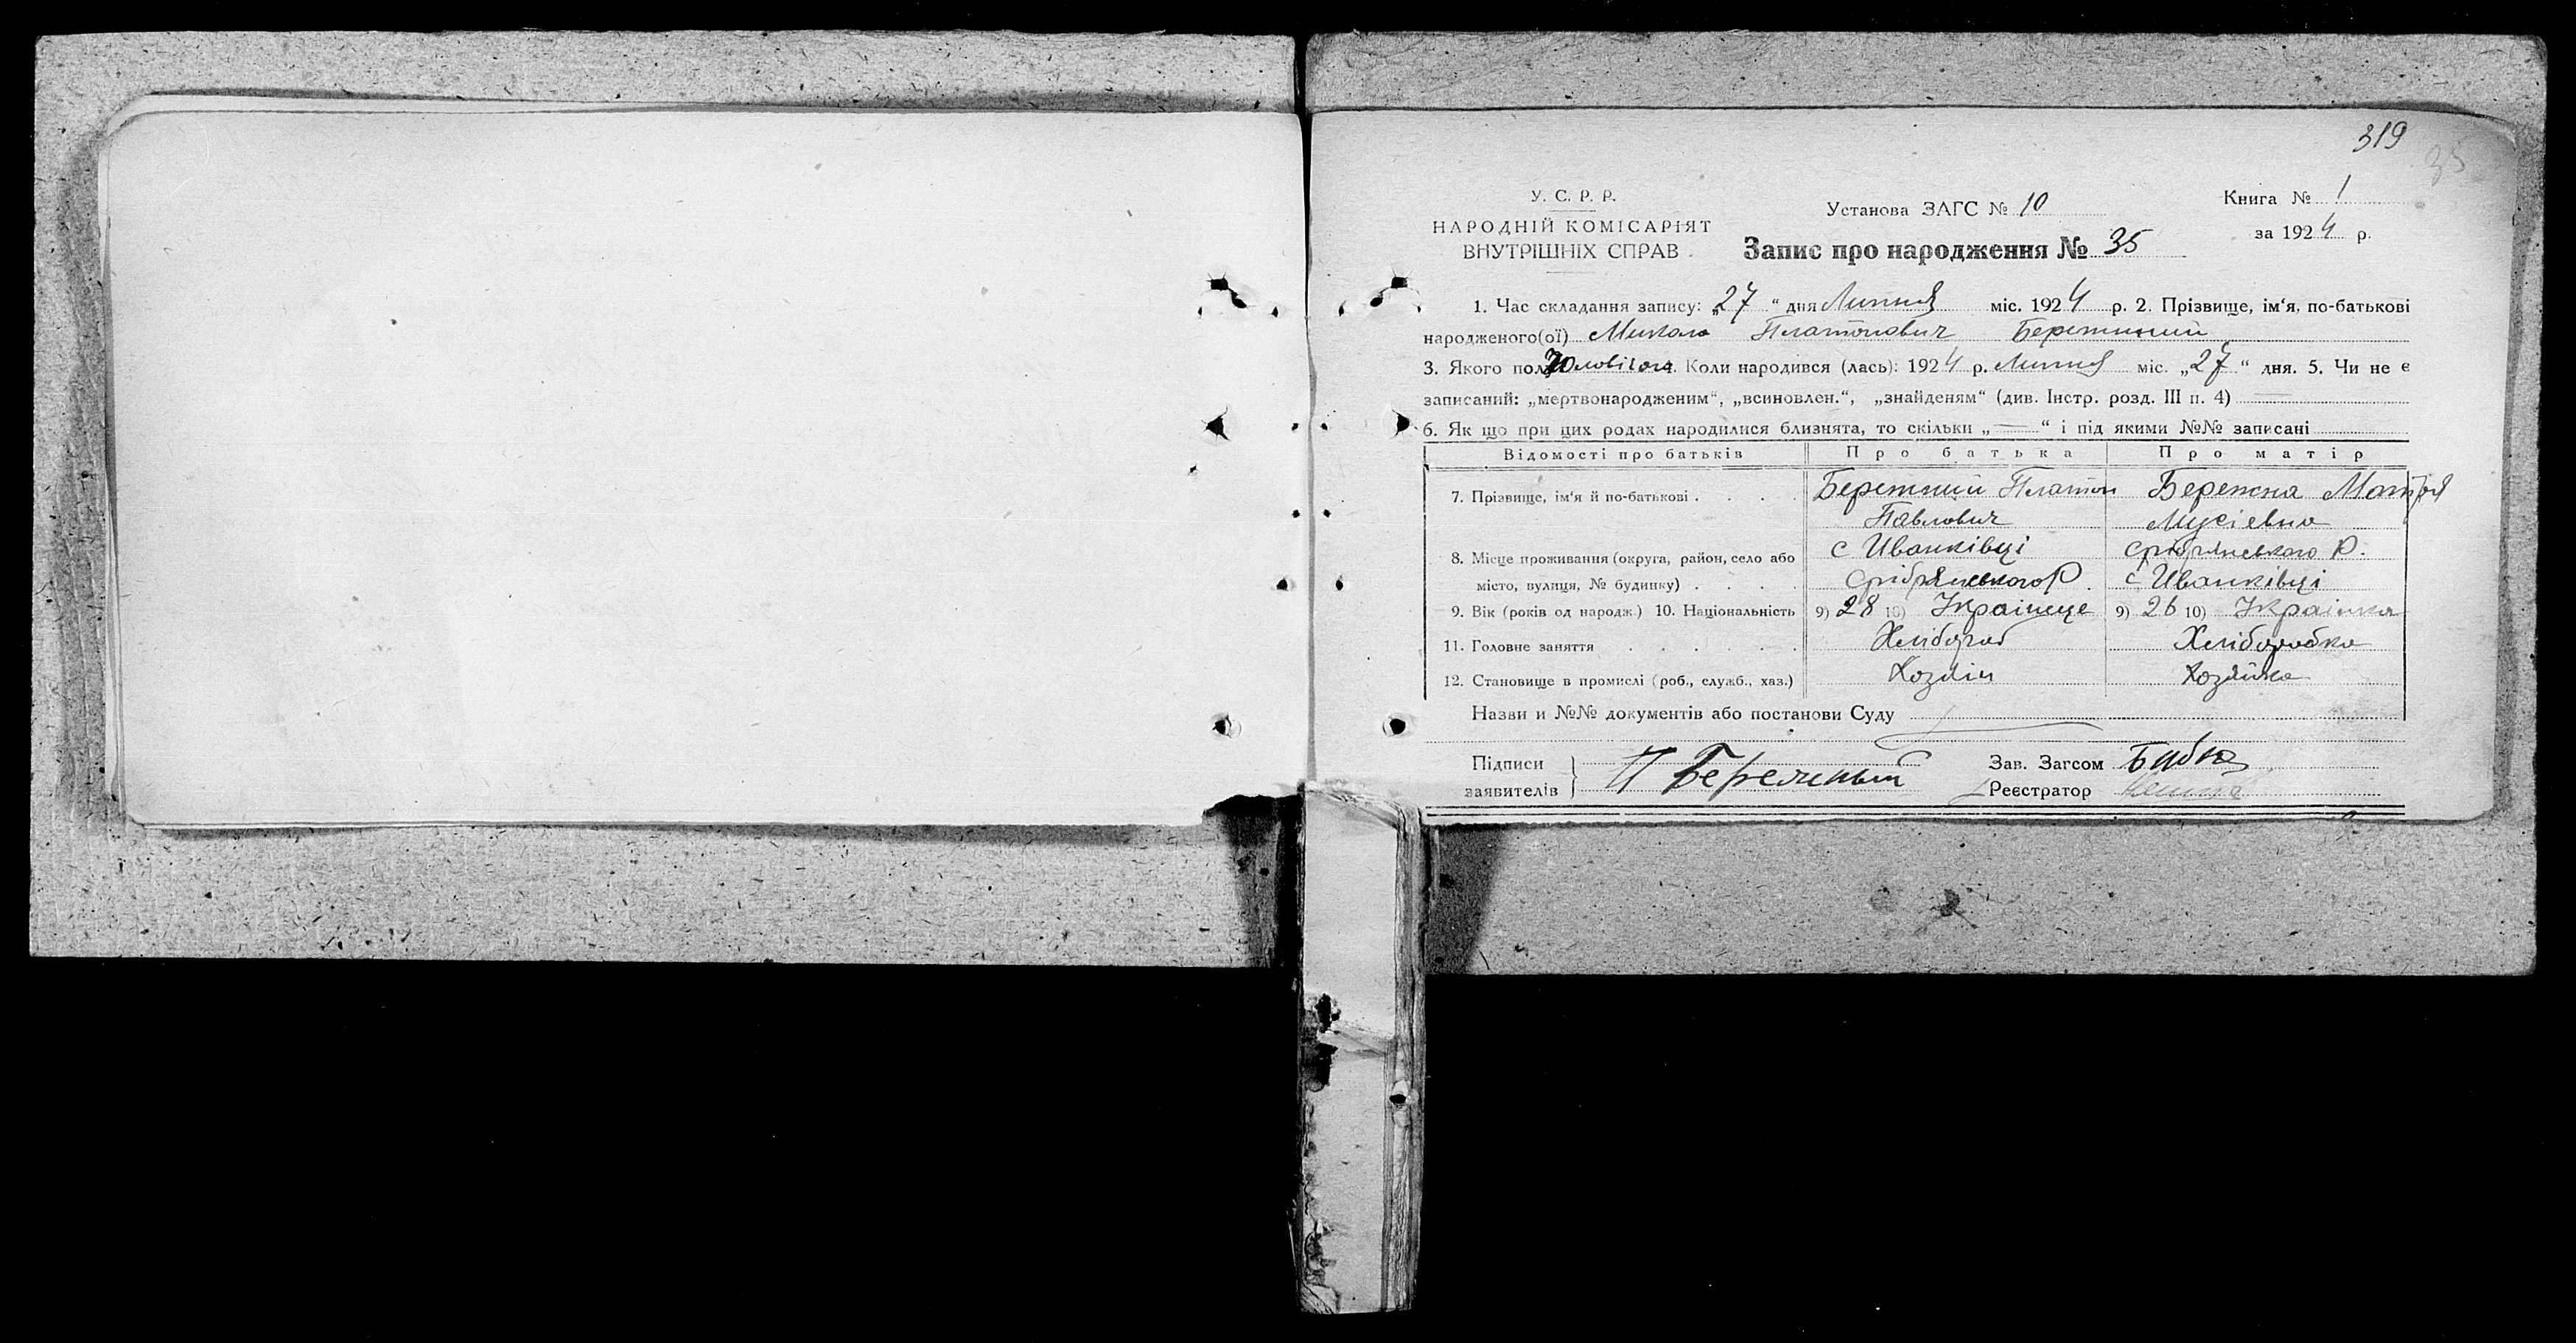 319
35
У. С. Р. Р.
НАРОДНІЙ КОМІСАРІЯТ
ВНУТРІШНІХ СПРАВ
Установа ЗАГС № 10
Запис про народження № 35
Книга № 1
за 1924 р.
1. Час складання запису: „27“ дня Липня міс. 1924 р. 2. Прізвище, ім‘я, по-батькові
народженого(ої) Микола Платонович Бережний
3. Якого полу Чоловічого 4. Коли народився (лась): 1924 р. Липня міс. „27“ дня. 5. Чи не є
записаний: „мертвонародженим“, „всиновлен.“, „знайденям“ (див. Інстр. розд. III п. 4) —
6. Як що при цих родах народилися близнята, то скільки „—“ і під якими №№ записані
Відомості про батьків Про батька Про матір
7. Прізвище, ім‘я й по-батькові . . . . Бережний Платон Бережна Мотря
Павлович Мусіевна
8. Місце проживання (округа, район, село або с Иванківці Срібрянського Р.
місто, вулиця, № будинку) . . . . Срібрянського Р. с Иванківці
9. Вік (років од народж.) 10. Національність 9) 28 10) Українце 9) 26 10) Українка
11. Головне заняття . . . . . . Хлібороб Хлібопобка
12. Становище в промислі (роб., служб., хаз.) Хозяін Хозяйка
Назви и №№ документів або постанови Суду
Підписи
заявителів } П Бережный
Зав. Загсом
Реєстратор